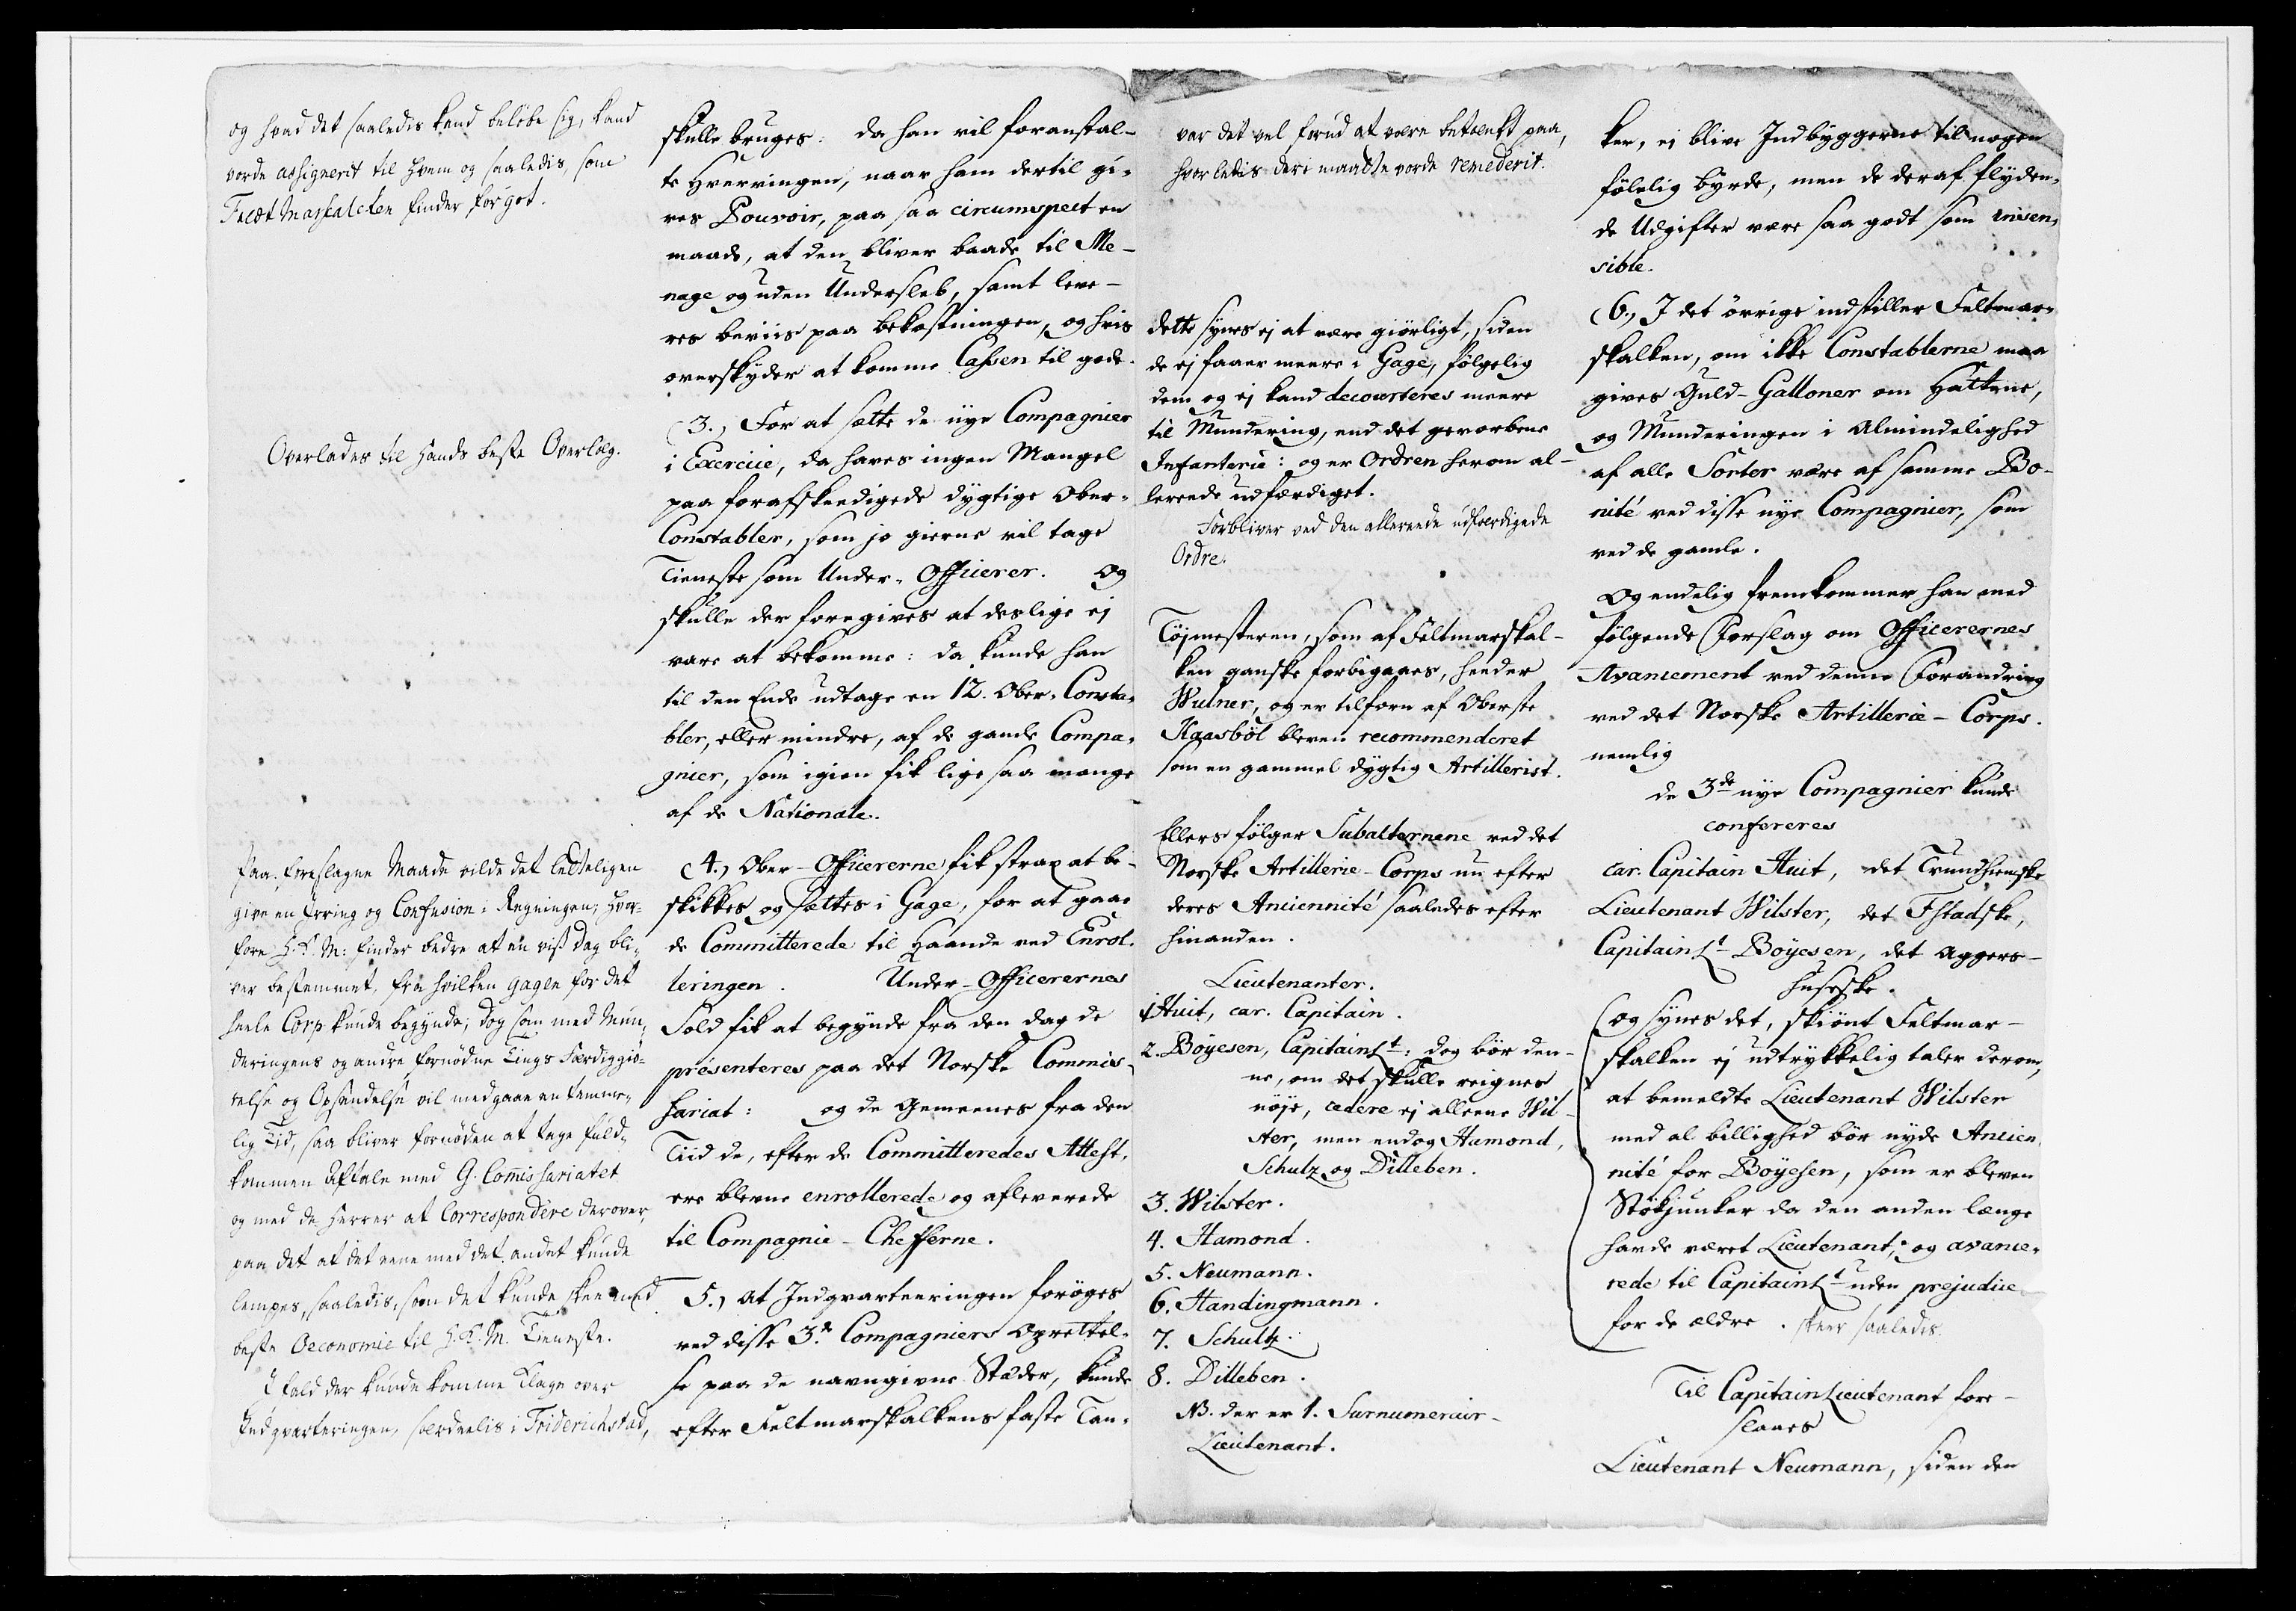 og hvad det saaledis kand beløbe sig, kand
vorde assignerit til hvem og saaledis, som
Feldt Marskalcken finder for got.
Overlades til hands beste Overlæg.
Paa foreslagne Maade vilde det letteligen
give en Irring og Confusion i Regningen; hvor-
fore H. K. M: finder bedre at en viss dag bli-
ver bestemmet, fra hvilken gagen for det
heele Corp kunde begynde; dog som med Mun-
deringens og andre fornødne Tings Færdiggiø-
relse og Opsendelse vil medgaae en temme-
lig Tid, saa bliver fornøden at tage fuld-
kommen Aftale med G. Commissariatet
og med de Herrer at Correspondere derover,
paa det at det eene med det andet kunde
lempes, saaledis, som det kunde skee med
beste Oeconomie til H. K. M. Tieneste.
I fald der kunde komme Klage over
Indqvarteringen, særdeelis i Friderichstad,
skulle bruges: da han vil foranstal-
te Hvervingen, naar ham dertil gi-
ves Pouvoir, paa saa circumspect en
maade, at den bliver baade til Me-
nage og uden Undersleb, samt leve-
res beviis paa bekostningen, og hvis
overskyder at komme Cassen til gode.
3.) For at sætte de nye Compagnier
i Exercice, da haves ingen Mangel
paa forafskeedigede dygtige Ober-
Constabler, som jo gierne vil tage
Tieneste som Under-Officerer. Og
skulle der foregives at deslige ej
vare at bekomme: da kunde han
til den Ende udtage en 12. Ober-Consta-
bler, eller mindre, af de gamle Compa-
gnier, som igien fik lige saa mange
af de Nationale.
4.) Ober-Officererne fik strax at be-
skikkes og sættes i Gage, for at gaae
de Committerede til Haande ved Enrol-
leringen. Under-Officerernes
Sold fik at begynde fra den dag de
præsenteres paa det Norske Commis-
sariat: og de Gemeenes fra den
Tiid de, efter de Committeredes Attest,
ere blevne enrollerede og afleverede
til Compagnie-Chefferne.
5.) At Indqvarteeringen forøges
ved disse 3de Compagniers Oprettel-
se paa de navngivne Stæder, kunde
efter Feltmarskalkens faste Tan-
var det vel forud at være betænkt paa,
hvorledis deri maatte vorde remederit.
dette synes ej at være giørligt, siden
de ej faaer meere i Gage, følgelig
dem og ej kand decourteres meere
til Mundering, end det gevorbene
Infanterie: og er Ordren herom al-
lereede udfærdiget.
Forbliver ved den allereede udfærdigede
Ordre.
Tøjmesteren, som af Feltmarskal-
ken ganske forbigaaes, heeder
Wulner, og er tilforn af Oberste
Kaasbøl bleven recommenderet
som en gammel dygtig Artillerist.
Ellers følger Subalternene ved det
Norske Artillerie-Corps nu efter
deres Anciennité saaledes efter
hinanden.
Lieutenanter.
1. Huit, car. Capitain.
2. Böyesen, CapitainLt: dog bør den-
ne, om det skulle reignes
nøje, cedere ej alleene Wil-
ster, men endog Hamond,
Schulz og Dilleben.
3. Wilster.
4. Hamond.
5. Neumann.
6. Handingmann.
7. Schulz.
8. Dilleben.
NB. der er 1. Surnumerair-
Lieutenant.
ker, ej blive Indbyggerne til nogen
følelig byrde, men de deraf flyden-
de Udgifter være saa godt som insen-
sible.
6.) I det øvrige indstiller Feltmar-
skalken, om ikke Constablerne maa
gives Guld-Galloner om Hattene,
og Munderingen i Almindelighed
af alle Sorter være af samme Bo-
nité ved disse nye Compagnier, som
ved de gamle.
Og endelig fremkommer han med
følgende Forslag om Officerernes
Avancement ved denne Forandring
ved det Norske Artillerie-Corps.
nemlig
de 3de nye Compagnier kunde
confereres
car. Capitain Huit, det Trundhiemske
Lieutenant Wilster, det Fstadske,
CapitainLt Böyesen, det Aggers-
husiske.
(og synes det, skiønt Feltmar-
skalken ej udtrykkelig taler derom,
at bemeldte Lieutenant Wilster
med al billighed bør nyde Ancien-
nité for Böyesen, som er bleven
Stökjunker da den anden længe
havde været Lieutenant; og avance-
rede til CapitainLt uden prejudice
for de ældre. skeer saaledis.
Til CapitainLieutenant fore-
slaaes
Lieutenant Neumann, siden den